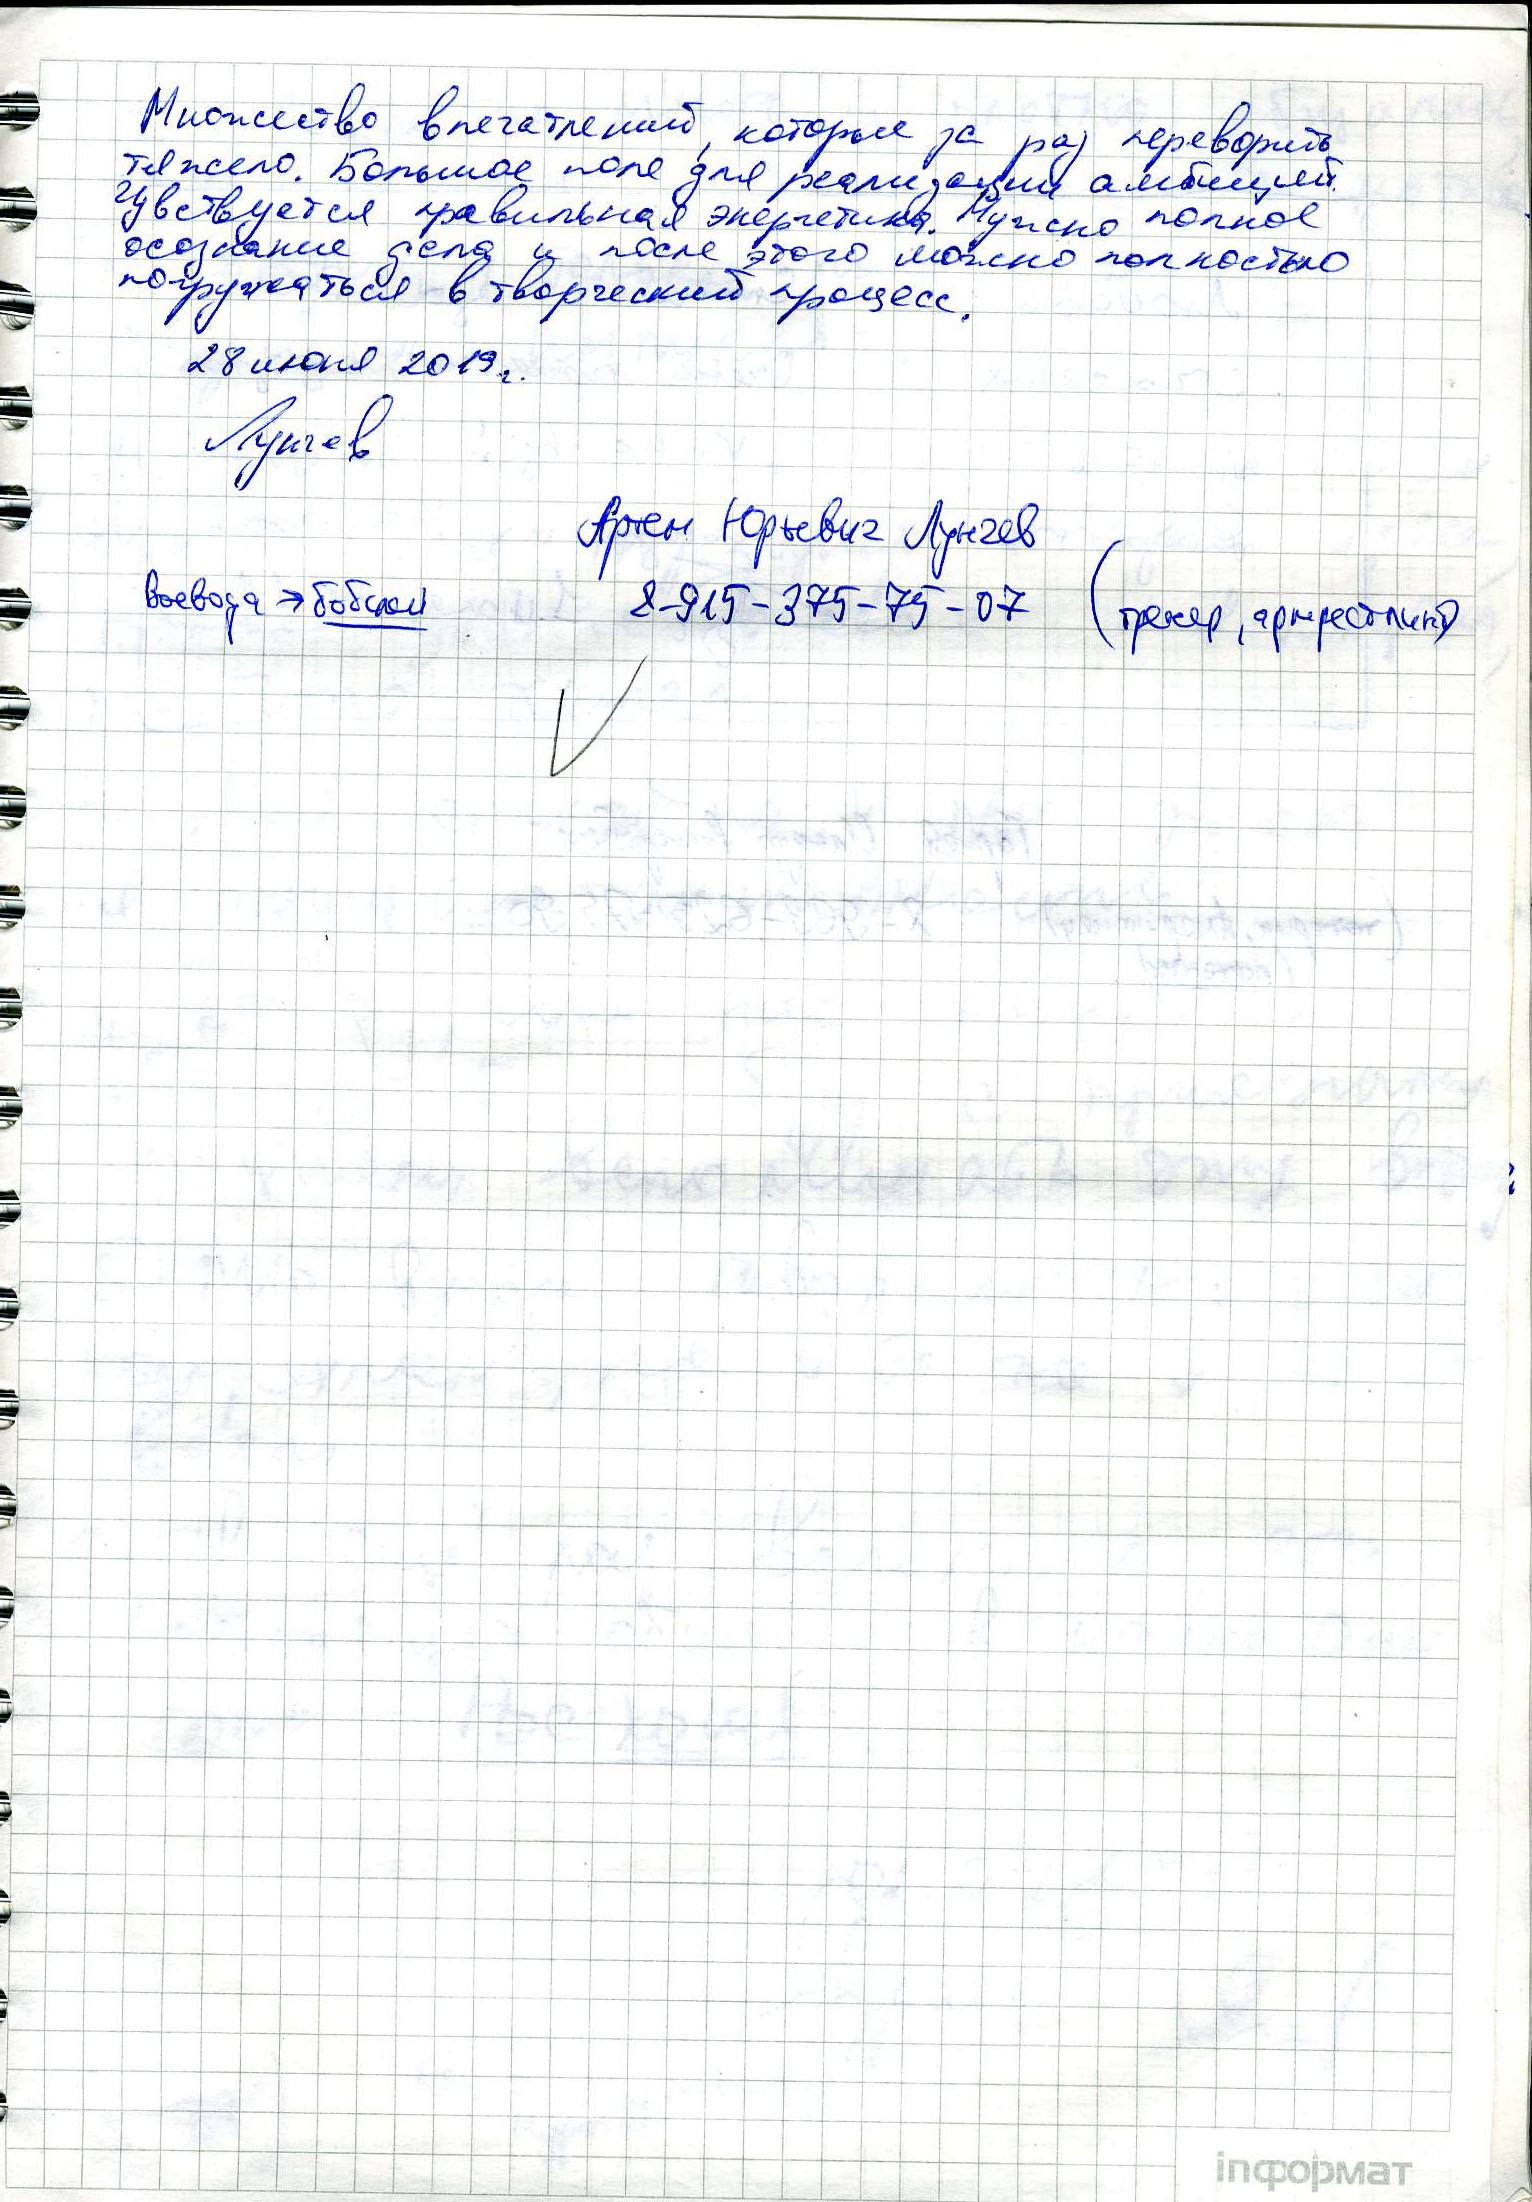 Множество впечатлений, которые за раз переворить
тяжело. Большое поле для реализации амбиций.
Чувствуется правильная энергетика. Нужно полное
осознание дела и после этого можно полностью
погружаться в творческий процесс.
28 июня 2019г.
Лунчев
Артем Юрьевич Лунчев
Воевода → бобслей 8-915-375-75-07 (тренер, армрестлинг)
inформат